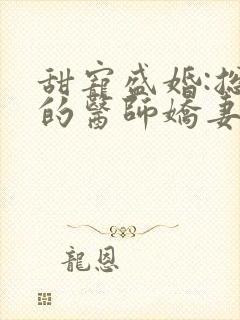 甜寵盛婚:
的醫師嬌妻
龍恩